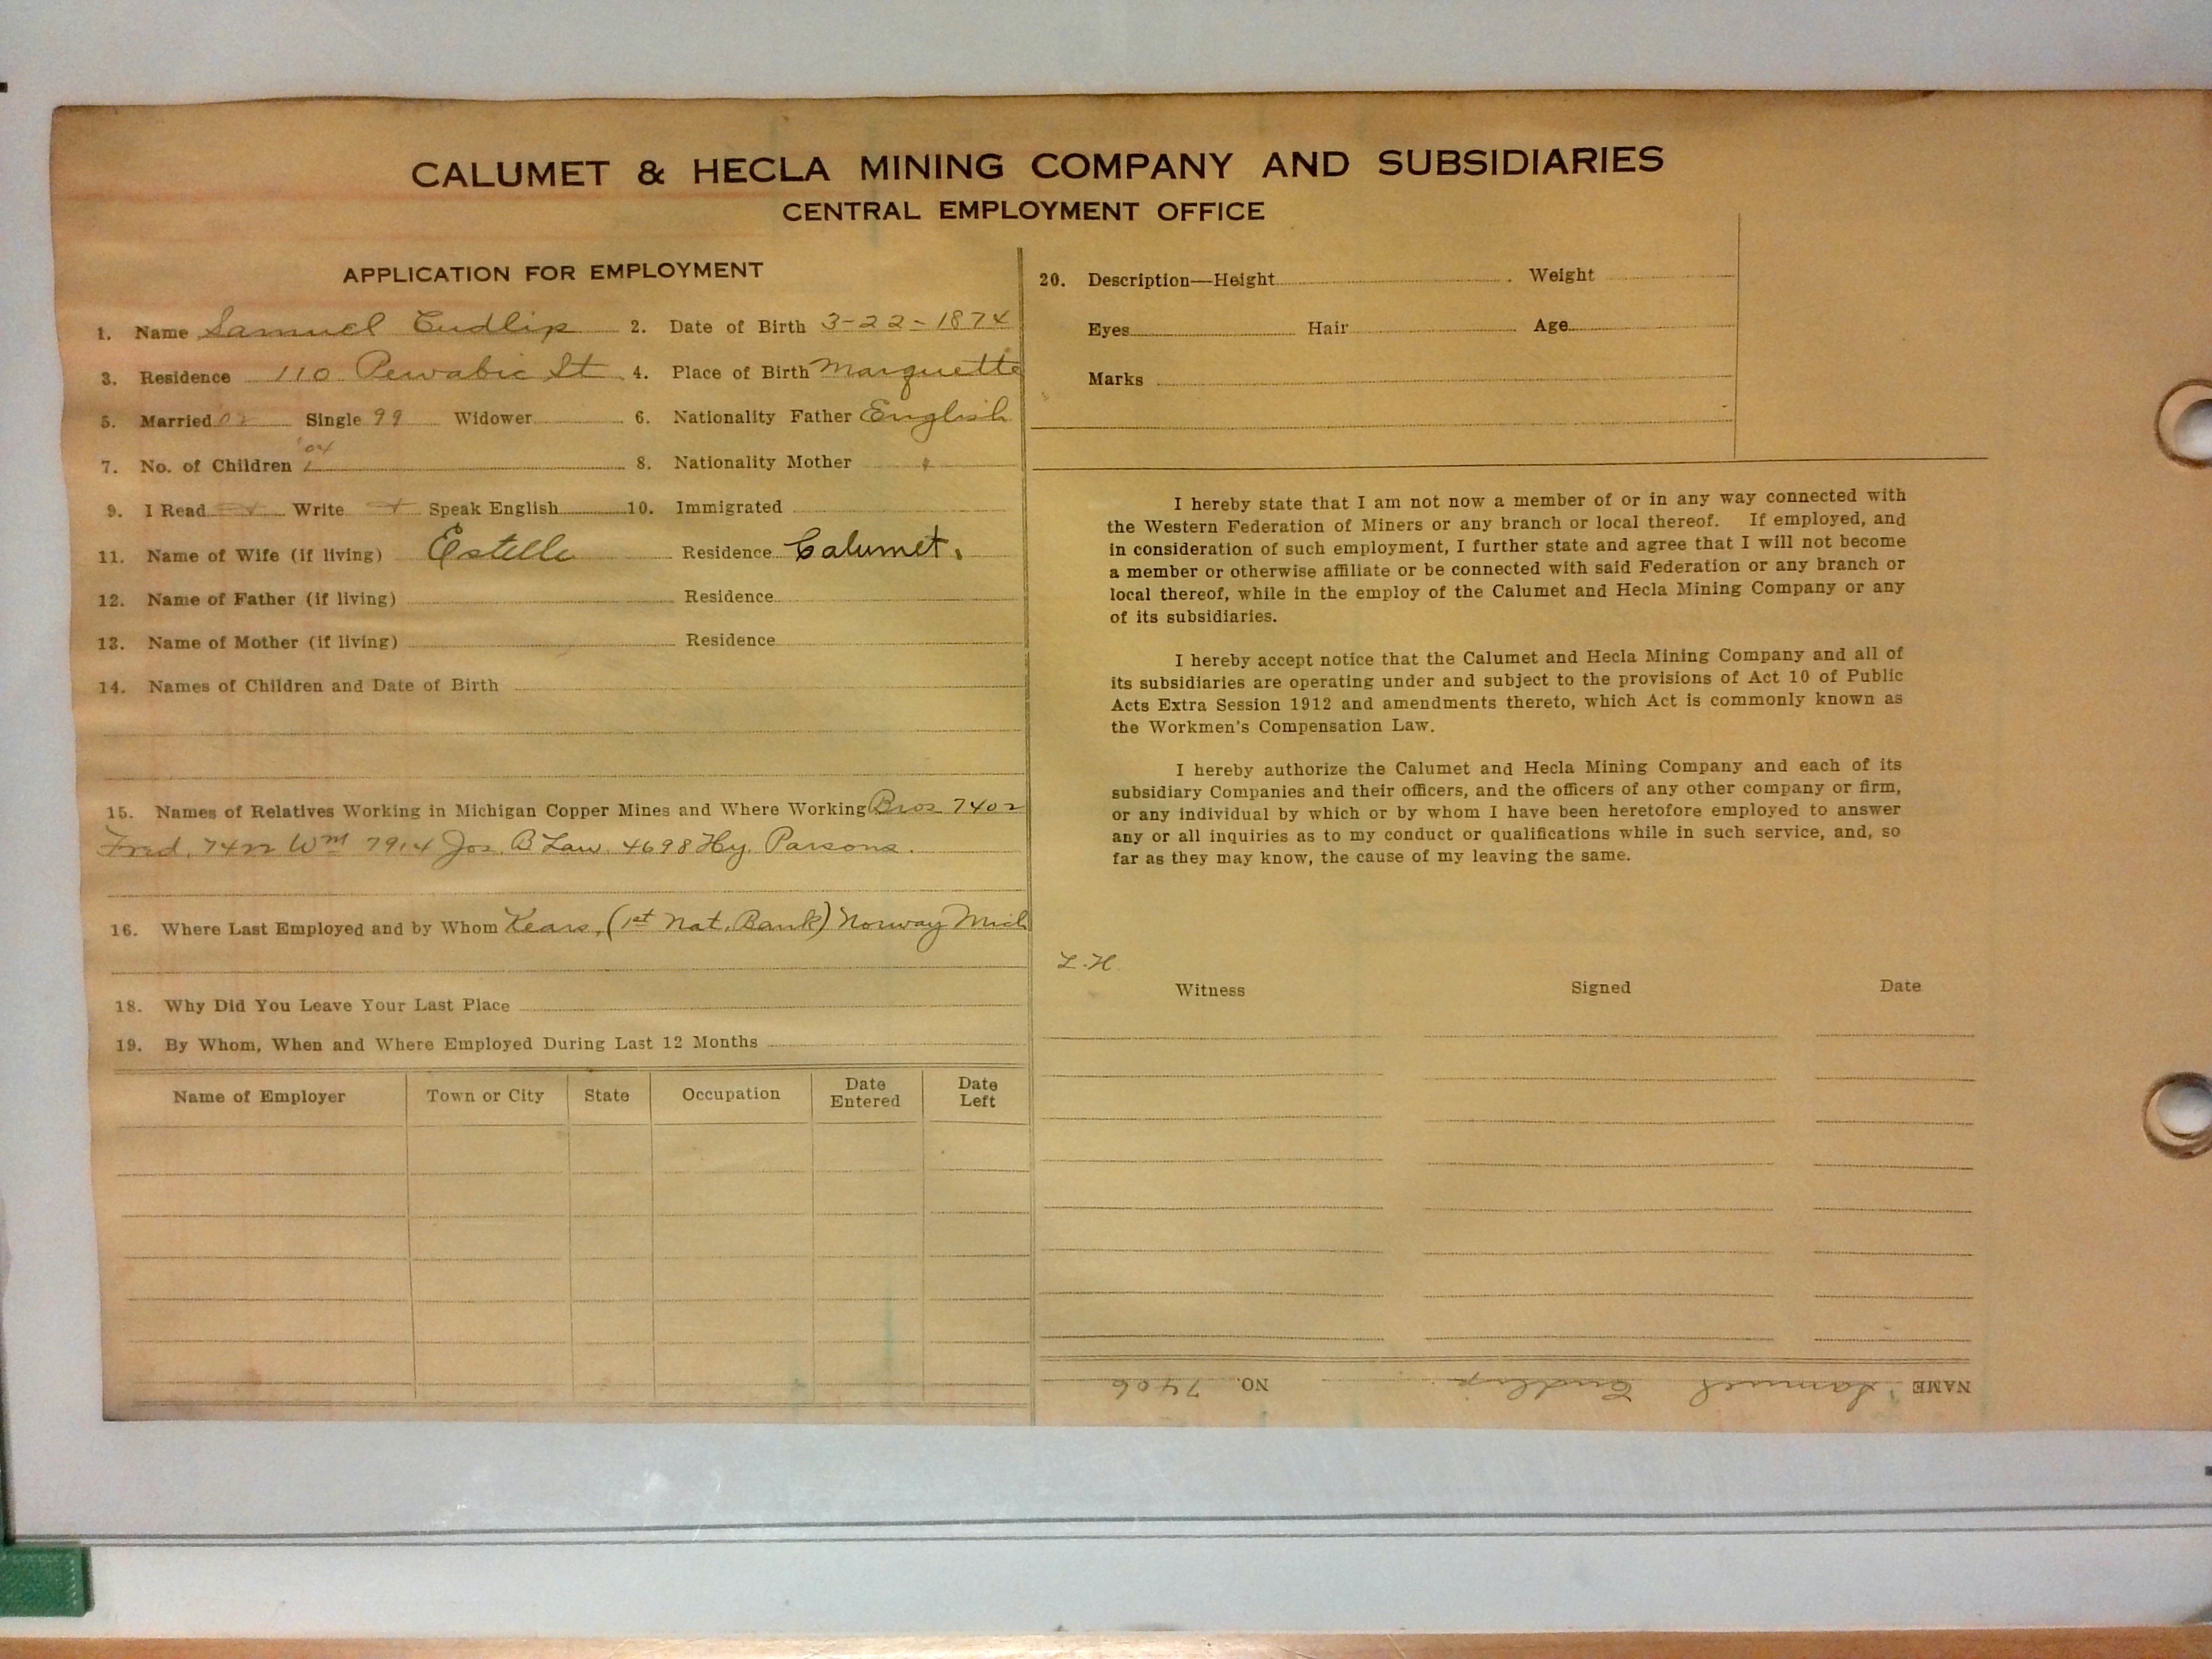 CALUMET & HECLA MINING COMPANY AND SUBSIDIARIES
CENTRAL EMPLOYMENT OFFICE
APPLICATION FOR EMPLOYMENT
1. Name Samuel Cudlip 2. Date of Birth 3-22-1874
3. Residence 110 Pewabic St 4. Place of Birth Marquette
5. Married 02 Single 99 Widower 6. Nationality Father English
'04
7. No. of Children 1 8. Nationality Mother
9. I Read Write Speak English 10. Immigrated
11. Name of Wife (if living) Estelle Residence Calumet.
12. Name of Father (if living) Residence
13. Name of Mother (if living) Residence
14. Names of Children and Date of Birth
15. Names of Relatives Working in Michigan Copper Mines and Where Working Bros 7402
Fred. 7422 Wm 7914 Jos. B Law. 4698 Hy. Parsons.
16. Where Last Employed and by Whom (1st Nat. Bank) Norway Mich
18. Why Did You Leave Your Last Place
19. By Whom, When and Where Employed During Last 12 Months
Name of Employer Town or City State Occupation Date Entered Date Left
20. Description—Height Weight
Eyes Hair Age
Marks
I hereby state that I am not now a member of or in any way connected with
the Western Federation of Miners or any branch or local thereof. If employed, and
in consideration of such employment, I further state and agree that I will not become
a member or otherwise affiliate or be connected with said Federation or any branch or
local thereof, while in the employ of the Calumet and Hecla Mining Company or any
of its subsidiaries.
I hereby accept notice that the Calumet and Hecla Mining Company and all of
its subsidiaries are operating under and subject to the provisions of Act 10 of Public
Acts Extra Session 1912 and amendments thereto, which Act is commonly known as
the Workmen's Compensation Law.
I hereby authorize the Calumet and Hecla Mining Company and each of its
subsidiary Companies and their officers, and the officers of any other company or firm,
or any individual by which or by whom I have been heretofore employed to answer
any or all inquiries as to my conduct or qualifications while in such service, and, so
far as they may know, the cause of my leaving the same.
L.H.
Witness Signed Date
NAME Samuel Cudlip NO. 7406